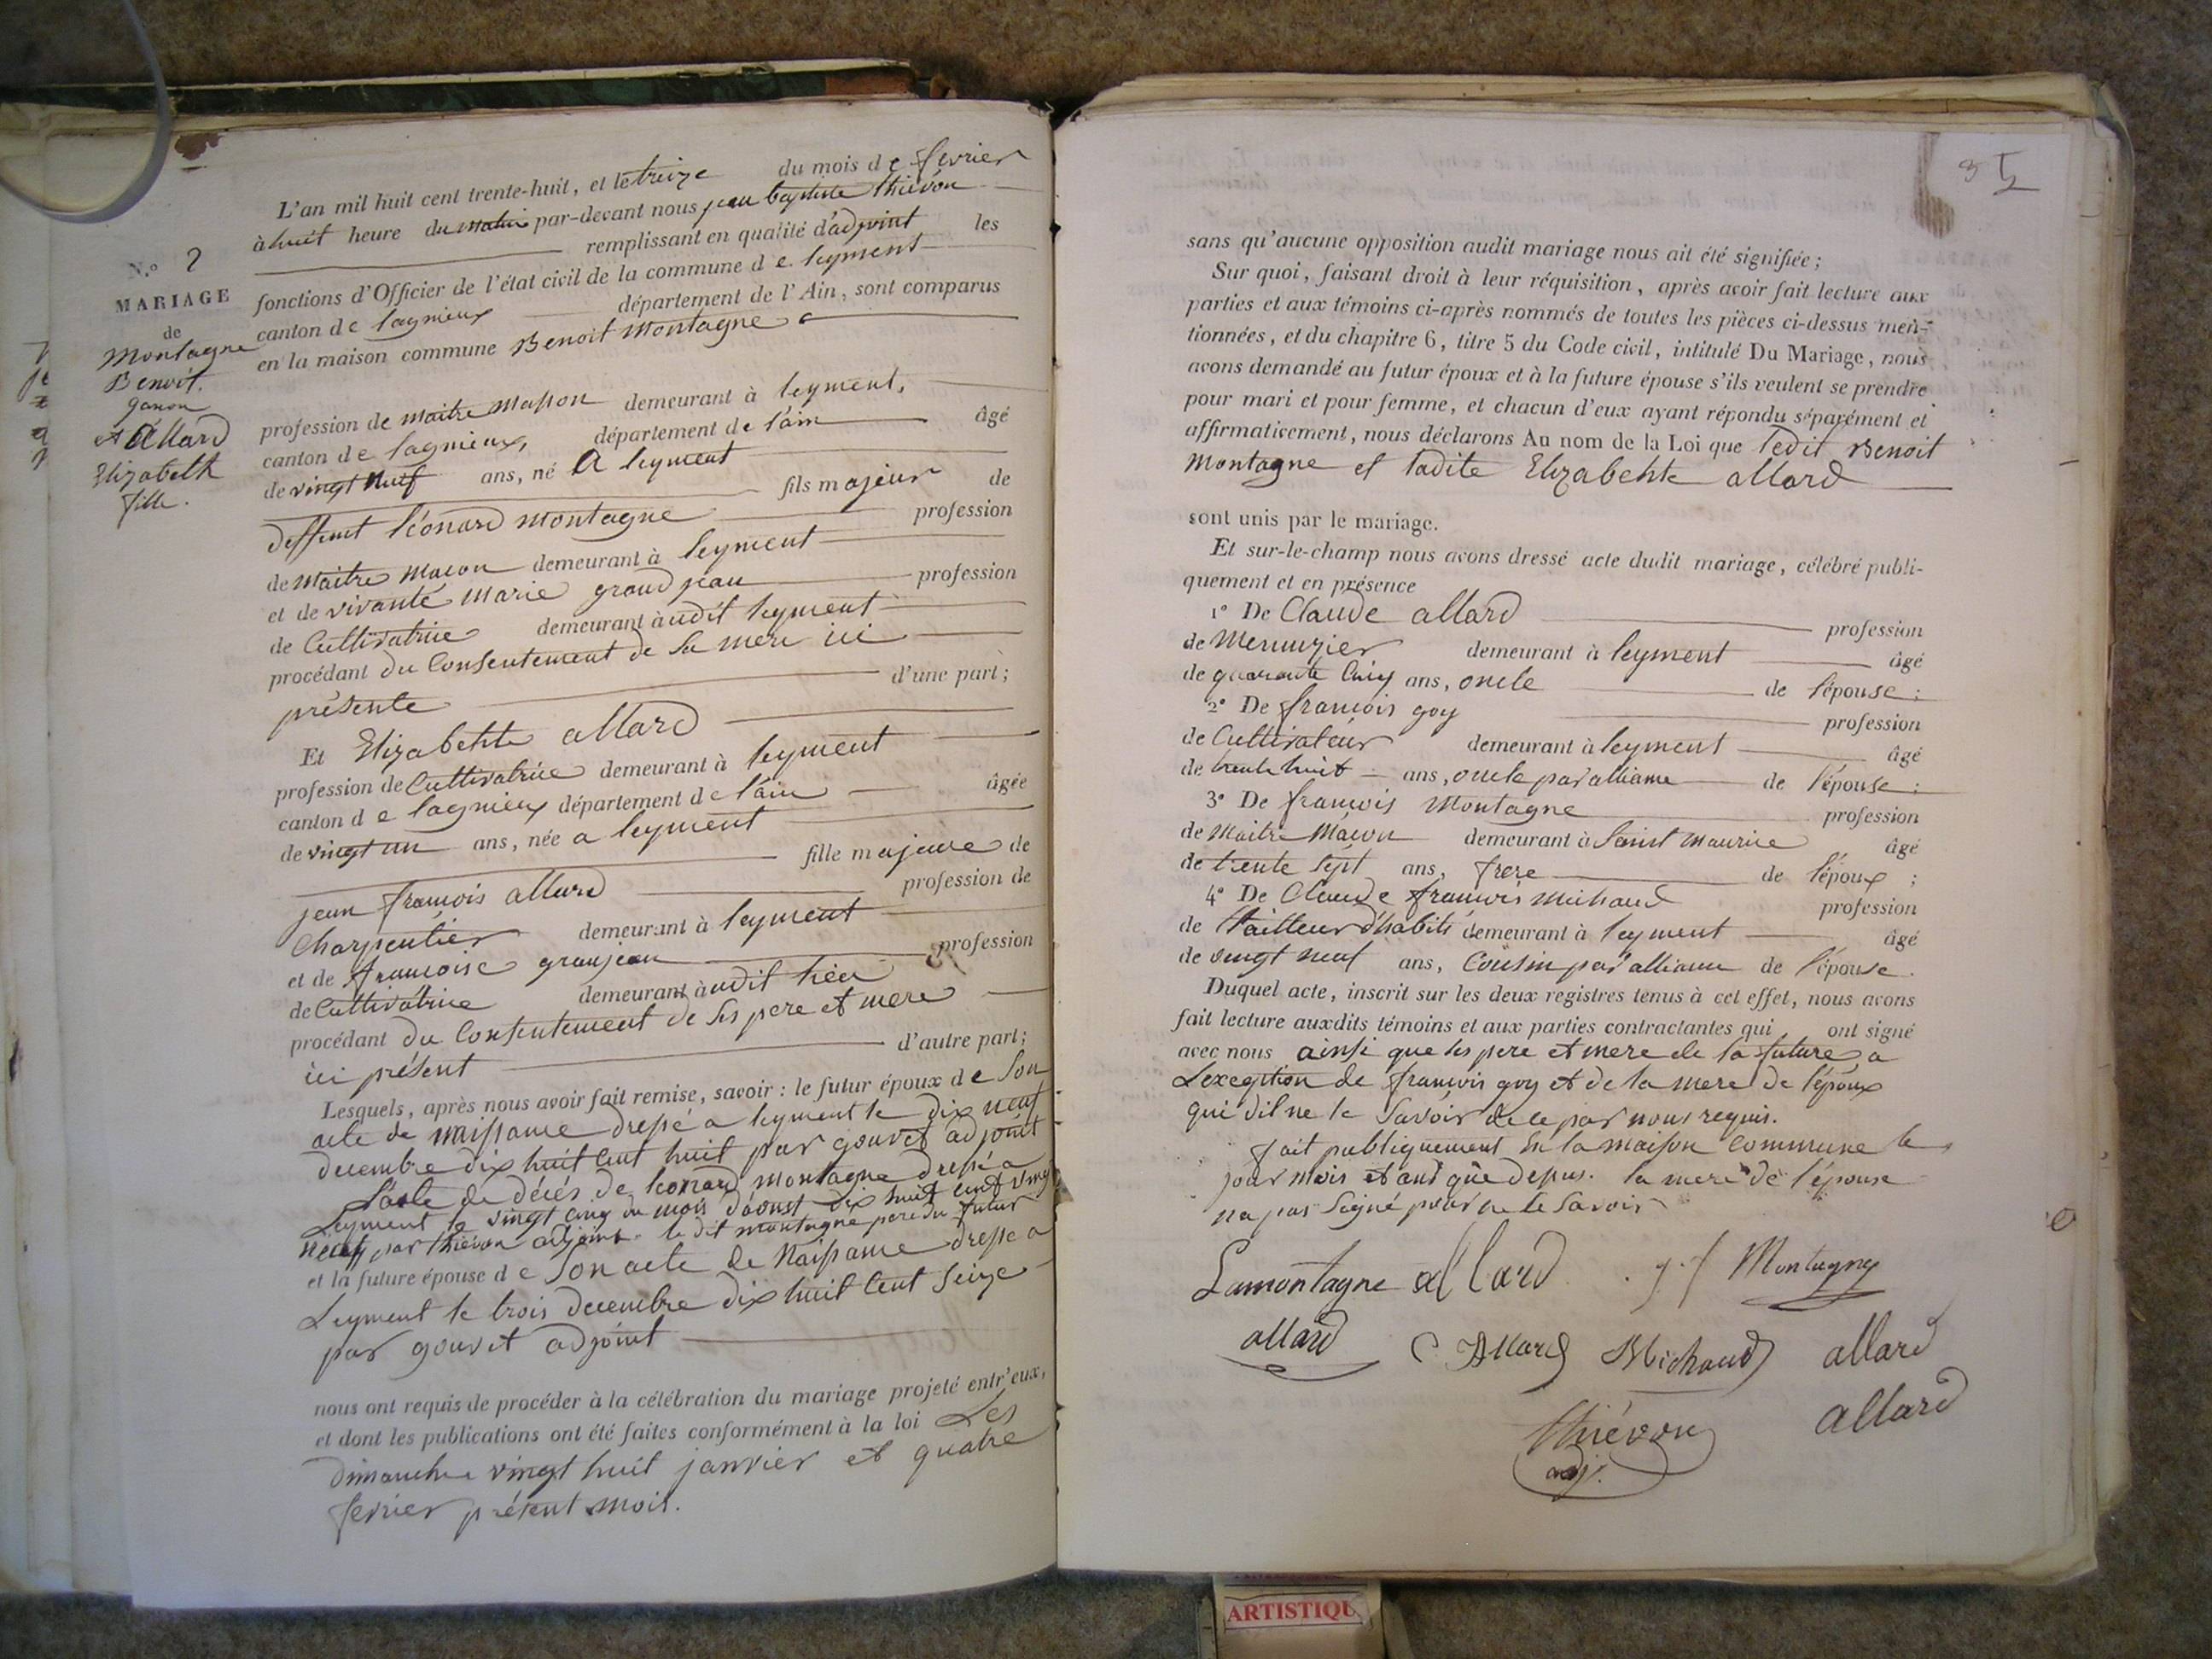 N.º 2
MARIAGE
de
Montagne
Benoit.
garcon
et Allard
Elizabeth
fille.
L'an mil huit cent trente-huit, et le treize du mois de fevrier
à huit heure du matin par-devant nous jean baptiste thiévon
remplissant en qualité d'adjoint les
fonctions d'Officier de l'état civil de la commune de leyment
canton de lagnieux département de l'Ain, sont comparus
en la maison commune Benoit Montagne
profession de maitre masson demeurant à leyment,
canton de lagnieux, département de l'ain âgé
de vingt neuf ans, né A leyment
fils majeur de
deffunt léonard montagne profession
de maitre macon demeurant à leyment
et de vivante marie grand jean profession
de Cultivatrice demeurant à udit leyment
procédant du Consentement de sa mere ici
présente d'une part;
Et Elizabehte allard
profession de Cultivatrice demeurant à leyment
canton de lagnieux département de l'ain âgée
de vingt un ans, née a leyment
fille majeure de
jean francois allard profession de
Charpentier demeurant à leyment
et de francoise granjean profession
de Cultivatrice demeurant àudit lieu
procédant du Consentement de ses pere et mere
ici présent d'autre part;
Lesquels, après nous avoir fait remise, savoir : le futur époux de Son
acte de naissance dressé a leyment le dix neuf
decembre dix huit Cent huit par gouvet adjoint
L'acte de décés de leonard montagne dressé a
Leyment le vingt cinq du mois d'aoust dix huit cent vingt
neuf par thiévon adjoint. le dit montagne pere du futur
et la future épouse de Son acte de Naissance dressé a
Leyment le trois decembre dix huit Cent Seize
par gouvet adjoint
nous ont requis de procéder à la célébration du mariage projeté entr'eux,
et dont les publications ont été faites conformément à la loi Les
dimanche vingt huit janvier et quatre
fevrier présent mois.
35
sans qu'aucune opposition audit mariage nous ait été signifiée;
Sur quoi, faisant droit à leur réquisition, après avoir fait lecture aux
parties et aux témoins ci-après nommés de toutes les pièces ci-dessus men-
tionnées, et du chapitre 6, titre 5 du Code civil, intitulé Du Mariage, nous
avons demandé au futur époux et à la future épouse s'ils veulent se prendre
pour mari et pour femme, et chacun d'eux ayant répondu séparément et
affirmativement, nous déclarons Au nom de la Loi que ledit Benoit
Montagne et ladite Elizabehte allard
sont unis par le mariage.
Et sur-le-champ nous avons dressé acte dudit mariage, célébré publi-
quement et en présence
1º De Claude allard profession
de Menuzier demeurant à leyment âgé
de quarante Cinq ans, oncle de l'épouse;
2º De francois goy profession
de Cultivateur demeurant à leyment âgé
de trente huit ans, oncle par alliance de l'épouse;
3º De francois Montagne profession
de Maitre Macon demeurant à Saint maurice âgé
de trente sept ans, frere de l'époux;
4º De Claude francois michaud profession
de tailleur d'habits demeurant à leyment âgé
de vingt neuf ans, Cousin par alliance de l'épouse.
Duquel acte, inscrit sur les deux registres tenus à cet effet, nous avons
fait lecture auxdits témoins et aux parties contractantes qui ont signé
avec nous ainsi que les pere et mere de la future a
L'exception de francois goy et de la mere de l'époux
qui dil ne le savoir de ce par nous requis.
fait publiquement En la maison Commune le
jour mois et ans que depus. la mere de l'épouse
na pas Signé pour ne le Savoir
Lamontagne allard j. f Montagny
allard C Allard Michaud allard
thiévon allard
adj.
ARTISTIQU